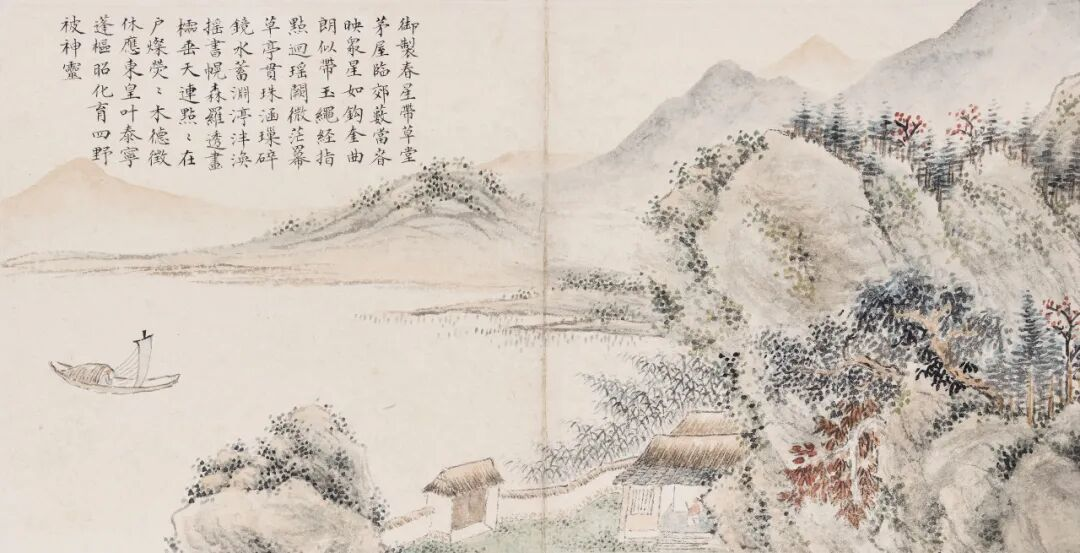 御製春星帶草堂
茅屋臨郊藪當春
映衆星如鈎奎曲
朗似帶玉繩経指
點迴瑤闕微茫冪
草亭貫珠涵璅碎
鏡水蓄淵渟泮渙
搖書幌森羅透畫
櫺垂天連點〻在
户燦熒〻木德徵
休應東皇叶泰寧
蓬樞昭化育四野
被神靈